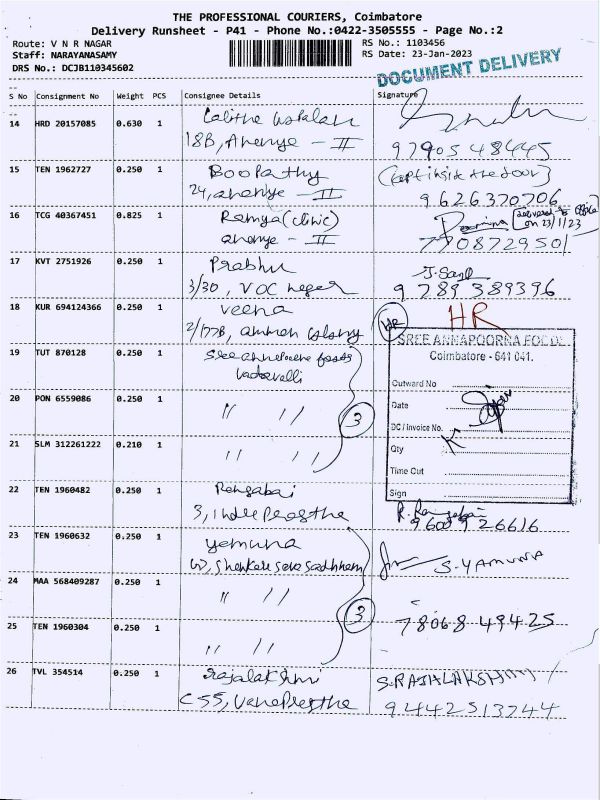 THE PROFESSIONAL COURIERS, Coimbatore
Delivery Runsheet - P41 - Phone No.:0422-3505555 - Page No.:2
Route: V N R NAGAR
RS No.: 1103456
Staff: NARAYANASAMY
RS Date: 23-Jan-2023
DRS No.: DCJB110345602
DOCUMENT DELIVERY
S No Consignment No Weight PCS Consignee Details Signature
14 HRD 20157085 0.630 1 Lalitha
18B, Ananya - II
97905 48445
15 TEN 1962727 0.250 1 Boopathy (kept inside the door)
24, ananye - II 9626370706
16 TCG 40367451 0.825 1 Ramya (clinic) delivered to office on 23/1/23
ananye - II 7708729501
17 KVT 2751926 0.250 1 Prabhu
3/30, VOC nagar 9789389396
18 KUR 694124366 0.250 1 veena HR
2/177B, amman colony HR
19 TUT 870128 0.250 1 Sree annapoorna foods
Vadavalli
SREE ANNAPOORNA FOODS
Coimbatore - 641 041.
Outward No
20 PON 6559086 0.250 1 " " 3
Date
DC / Invoice No.
21 SLM 312261222 0.210 1 " "
Qty
Time Out
Sign
22 TEN 1960482 0.250 1 Rengabai
3, Indraprastha 9600926616
23 TEN 1960632 0.250 1 yamuna
S. YAMUNA
24 MAA 568409287 0.250 1 " " 3
25 TEN 1960304 0.250 1 " " 78068 49425
26 TVL 354514 0.250 1 Rajalakshmi S. RAJALAKSHMI
C 55, Vanaprastha 9442513744